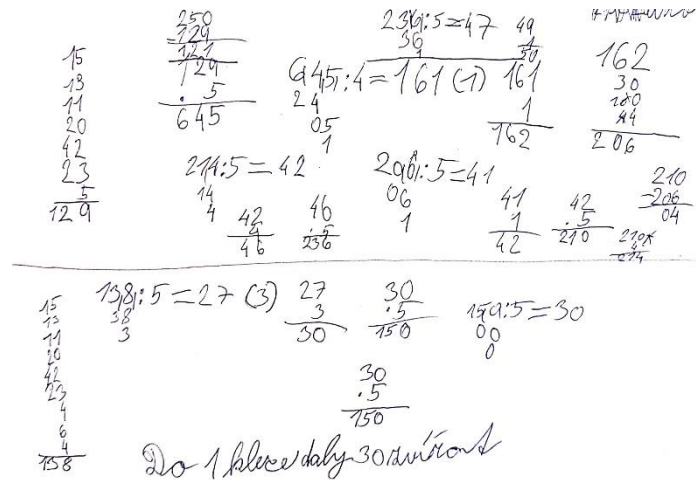 250
129
121
15
13
11
20
42
23
5
129
129
. 5
645
236:5=47
36
1
49
1
50
645:4=161 (1)
24
05
1
161
1
162
162
30
44
206
214:5=42
14
4
42
4
46
46
. 5
236
206:5=41
06
1
41
1
42
42
. 5
210
210
-206
04
210
4
214
15
13
11
20
42
23
4
6
4
138
138:5=27 (3)
38
3
27
3
30
30
. 5
150
150:5=30
00
0
30
. 5
150
Do 1 klece daly 30 zvířat